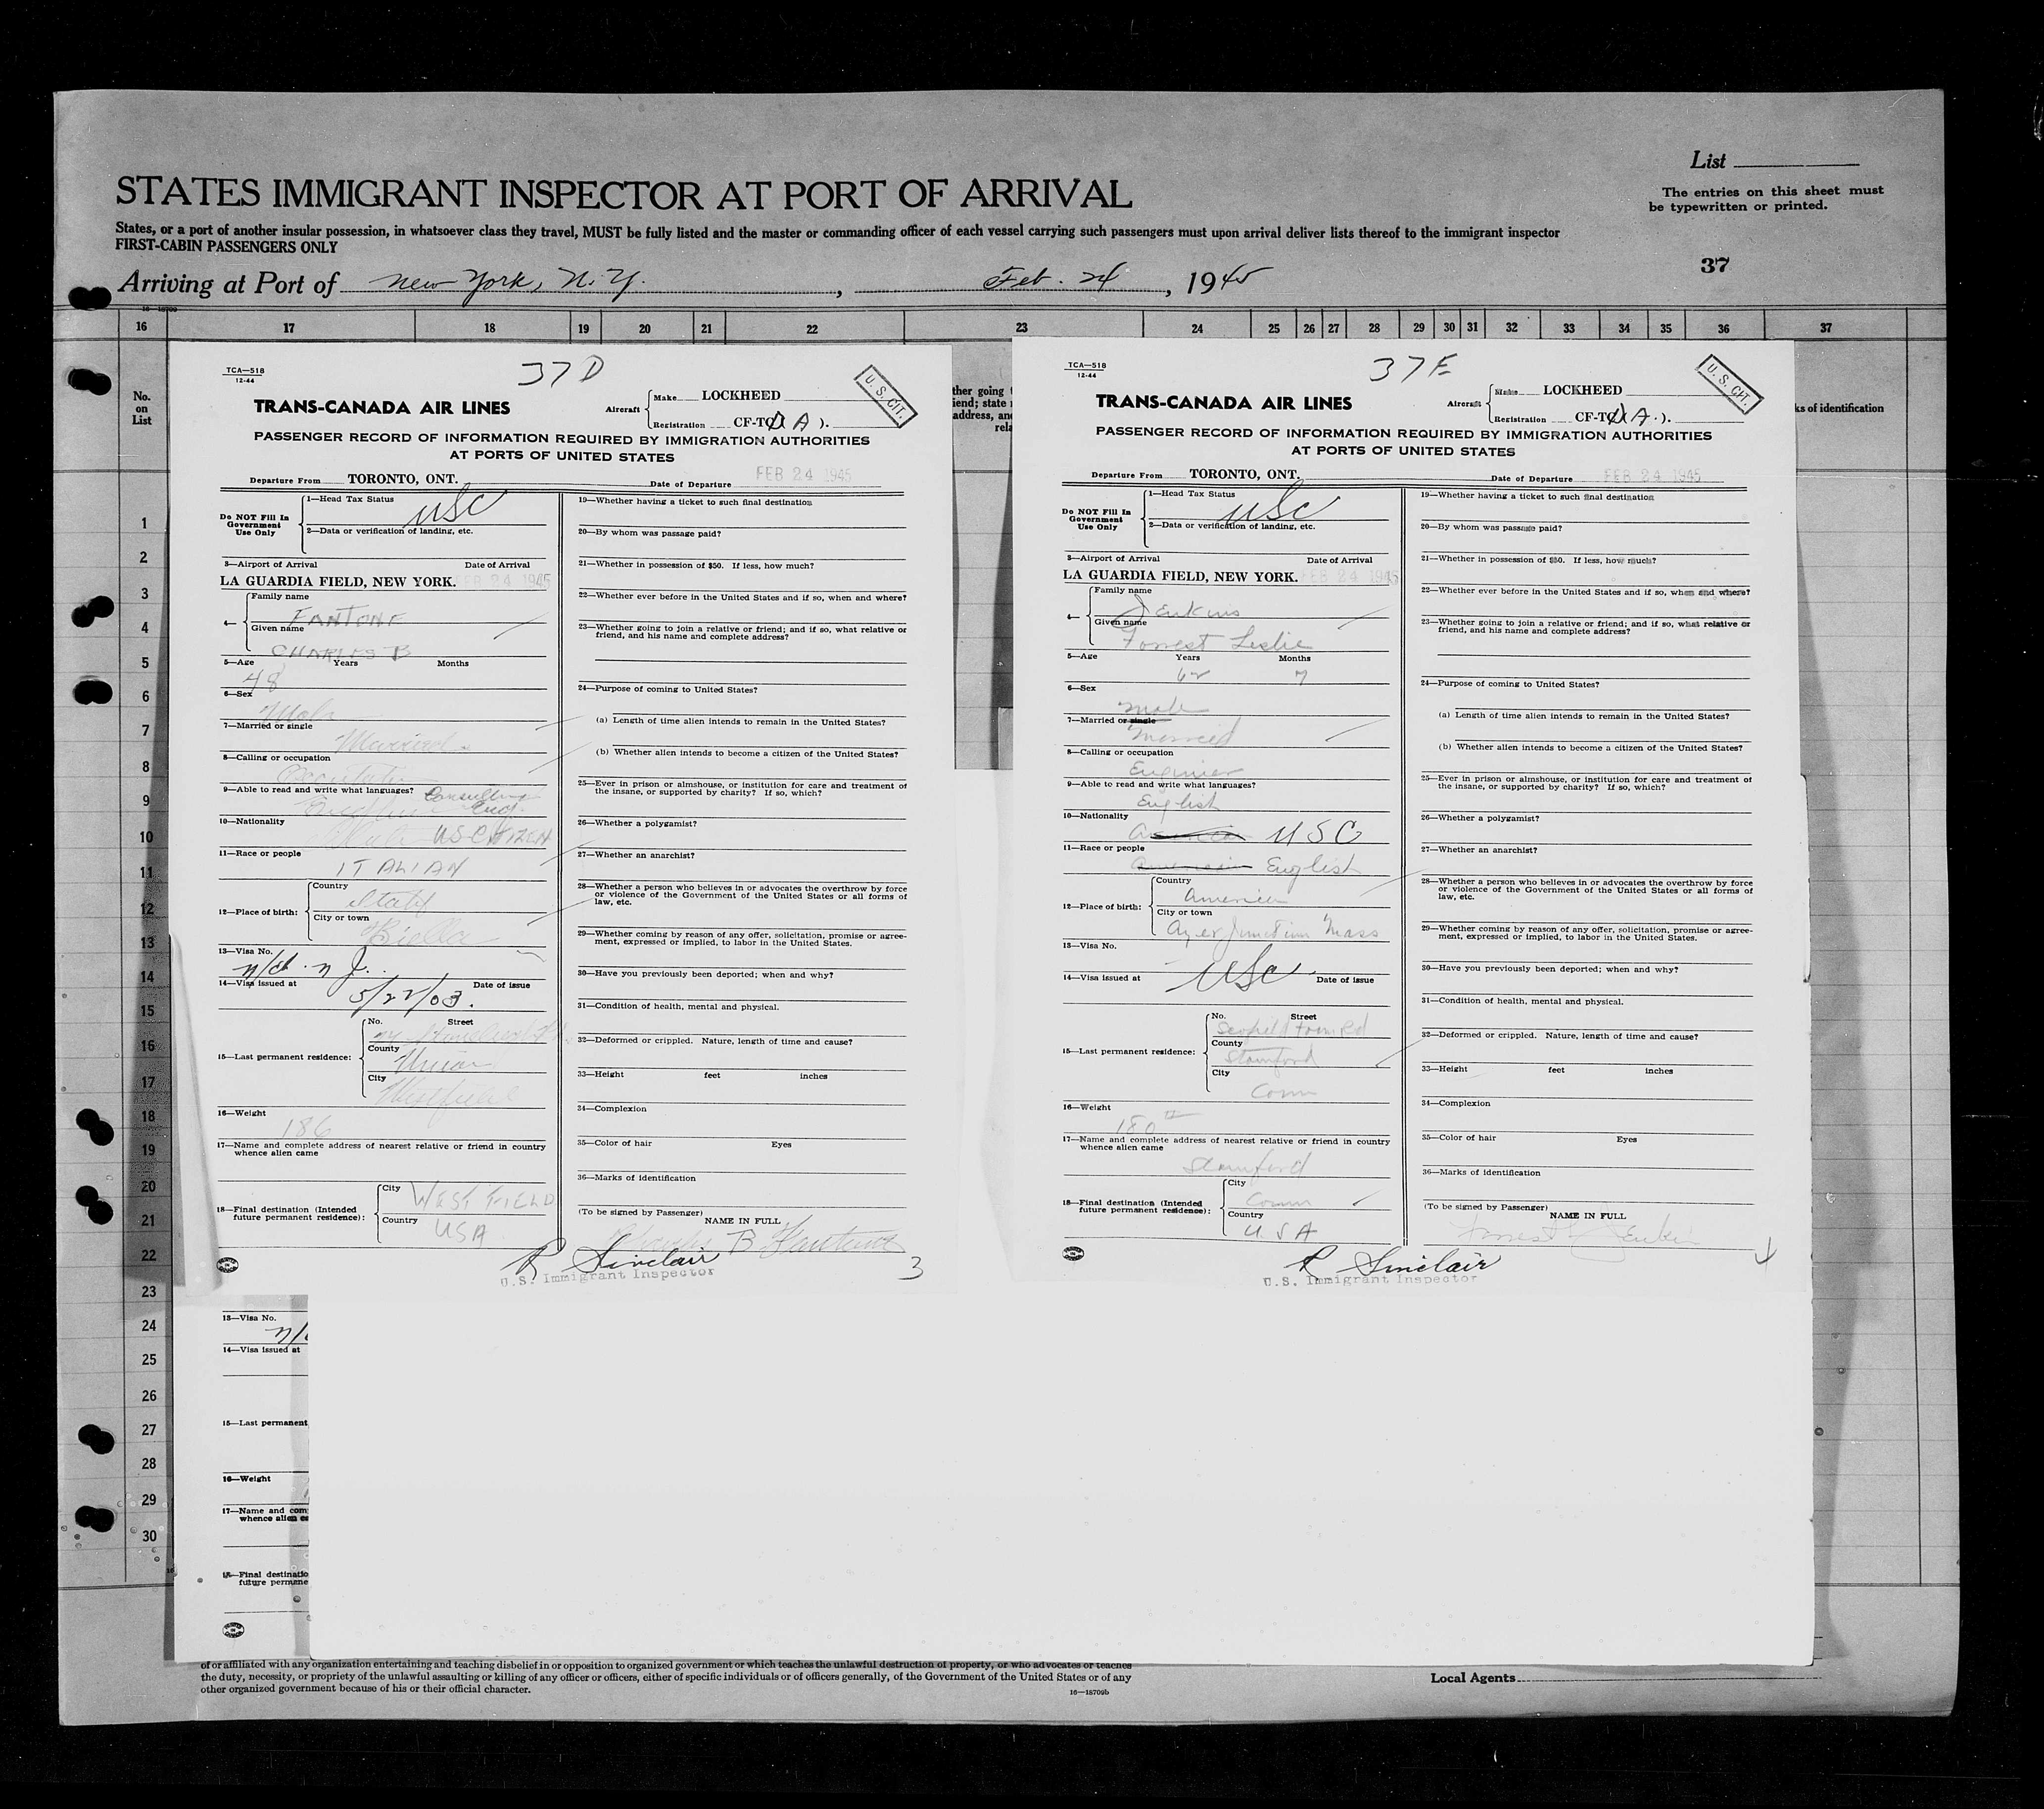 List
STATES IMMIGRANT INSPECTOR AT PORT OF ARRIVAL
The entries on this sheet must
be typewritten or printed.
States, or a port of another insular possession, in whatsoever class they travel, MUST be fully listed and the master or commanding officer of each vessel carrying such passengers must upon arrival deliver lists thereof to the immigrant inspector
FIRST-CABIN PASSENGERS ONLY
37
Arriving at Port of New York, N.Y. , Feb. 24 , 1945
16 17 18 19 20 21 22 23 24 25 26 27 28 29 30 31 32 33 34 35 36 37
No.
on
List
1
2
3
4
5
6
7
8
9
10
11
12
13
14
15
16
17
18
19
20
21
22
23
24
25
26
27
28
29
30
ther going
iend; state
address, an
rela
ks of identification
TCA—518
12-44
37D
U. S. CIT.
TRANS-CANADA AIR LINES
Aircraft
Make LOCKHEED
Registration CF-TC A ).
PASSENGER RECORD OF INFORMATION REQUIRED BY IMMIGRATION AUTHORITIES
AT PORTS OF UNITED STATES
Departure From TORONTO, ONT. Date of Departure FEB 24 1945
Do NOT Fill In
Government
Use Only
1—Head Tax Status
USC
2—Data or verification of landing, etc.
3—Airport of Arrival Date of Arrival
LA GUARDIA FIELD, NEW YORK. FEB 24 1945
4—
Family name
FANTONE
Given name
CHARLES B
5—Age Years Months
48
6—Sex
Male
7—Married or single
Married
8—Calling or occupation
Consulting
Eng.
9—Able to read and write what languages?
English
10—Nationality
US CITIZEN
11—Race or people
ITALIAN
12—Place of birth:
Country
Italy
City or town
Biella
13—Visa No.
14—Visa issued at Date of issue
5/22/03.
15—Last permanent residence:
No. Street
County
Union
City
Westfield
16—Weight
186
17—Name and complete address of nearest relative or friend in country
whence alien came
18—Final destination (Intended
future permanent residence):
City
WESTFIELD
Country
USA
19—Whether having a ticket to such final destination
20—By whom was passage paid?
21—Whether in possession of $50. If less, how much?
22—Whether ever before in the United States and if so, when and where?
23—Whether going to join a relative or friend; and if so, what relative or
friend, and his name and complete address?
24—Purpose of coming to United States?
(a) Length of time alien intends to remain in the United States?
(b) Whether alien intends to become a citizen of the United States?
25—Ever in prison or almshouse, or institution for care and treatment of
the insane, or supported by charity? If so, which?
26—Whether a polygamist?
27—Whether an anarchist?
28—Whether a person who believes in or advocates the overthrow by force
or violence of the Government of the United States or all forms of
law, etc.
29—Whether coming by reason of any offer, solicitation, promise or agree-
ment, expressed or implied, to labor in the United States.
30—Have you previously been deported; when and why?
31—Condition of health, mental and physical.
32—Deformed or crippled. Nature, length of time and cause?
33—Height feet inches
34—Complexion
35—Color of hair Eyes
36—Marks of identification
(To be signed by Passenger)
NAME IN FULL
Charles B Fantone
R Sinclair
U.S. Immigrant Inspector
3
TCA—518
12-44
37E
U. S. CIT.
TRANS-CANADA AIR LINES
Aircraft
Make LOCKHEED
Registration CF-TC A ).
PASSENGER RECORD OF INFORMATION REQUIRED BY IMMIGRATION AUTHORITIES
AT PORTS OF UNITED STATES
Departure From TORONTO, ONT. Date of Departure FEB 24 1945
Do NOT Fill In
Government
Use Only
1—Head Tax Status
USC
2—Data or verification of landing, etc.
3—Airport of Arrival Date of Arrival
LA GUARDIA FIELD, NEW YORK. FEB 24 1945
4—
Family name
Jenkins
Given name
Forrest Leslie
5—Age Years Months
62 7
6—Sex
Male
7—Married or single
Married
8—Calling or occupation
Engineer
9—Able to read and write what languages?
English
10—Nationality
American USC
11—Race or people
American English
12—Place of birth:
Country
American
City or town
Ayer Junction Mass
13—Visa No.
14—Visa issued at USC Date of issue
15—Last permanent residence:
No. Street
Scofieldtown Rd
County
Stamford
City
Conn
16—Weight
180
17—Name and complete address of nearest relative or friend in country
whence alien came
Stamford
18—Final destination (Intended
future permanent residence):
City
Conn
Country
U.S.A
19—Whether having a ticket to such final destination
20—By whom was passage paid?
21—Whether in possession of $50. If less, how much?
22—Whether ever before in the United States and if so, when and where?
23—Whether going to join a relative or friend; and if so, what relative or
friend, and his name and complete address?
24—Purpose of coming to United States?
(a) Length of time alien intends to remain in the United States?
(b) Whether alien intends to become a citizen of the United States?
25—Ever in prison or almshouse, or institution for care and treatment of
the insane, or supported by charity? If so, which?
26—Whether a polygamist?
27—Whether an anarchist?
28—Whether a person who believes in or advocates the overthrow by force
or violence of the Government of the United States or all forms of
law, etc.
29—Whether coming by reason of any offer, solicitation, promise or agree-
ment, expressed or implied, to labor in the United States.
30—Have you previously been deported; when and why?
31—Condition of health, mental and physical.
32—Deformed or crippled. Nature, length of time and cause?
33—Height feet inches
34—Complexion
35—Color of hair Eyes
36—Marks of identification
(To be signed by Passenger)
NAME IN FULL
Forrest L Jenkins
R Sinclair
U.S. Immigrant Inspector
13—Visa No.
14—Visa issued at
15—Last permanent
16—Weight
17—Name and com
whence alien ca
18—Final destinatio
future permane
of or affiliated with any organization entertaining and teaching disbelief in or opposition to organized government or which teaches the unlawful destruction of property, or who advocates or teaches
the duty, necessity, or propriety of the unlawful assaulting or killing of any officer or officers, either of specific individuals or of officers generally, of the Government of the United States or of any
other organized government because of his or their official character.
16—18709b
Local Agents